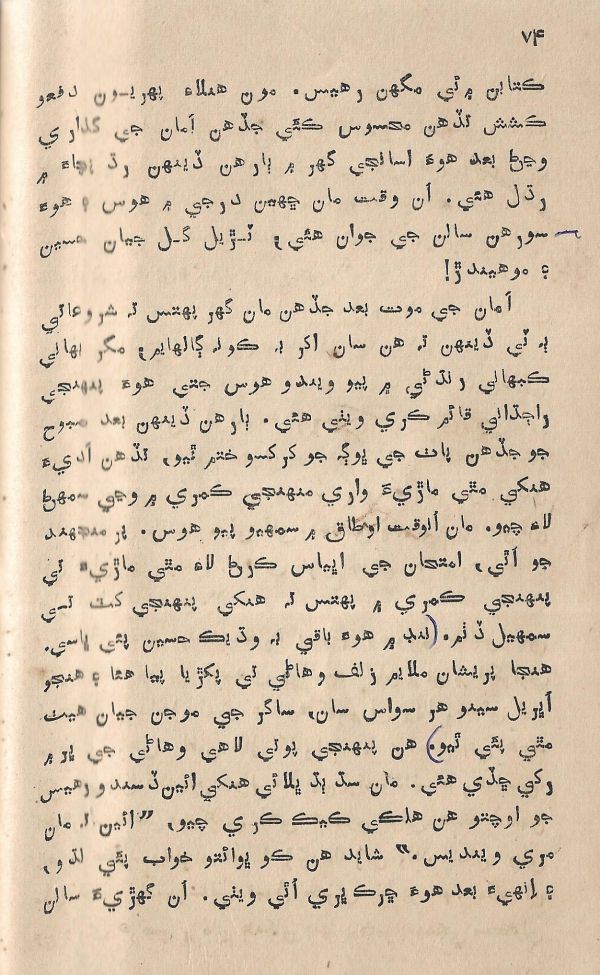 ۷۴
ڪتابن ۾ ئي مگهن رهيس. مون هنلاءِ پهريـون دفعو
ڪشش تڏهن محسوس ڪئي جڏهن اَمان جي گذاري
وڃڻ بعد هوءَ اسانجي گهر ۾ ٻارهن ڏينهن رڌ پچاءَ ۾
رڌل هئي. اُن وقت مان ڇهين درجي ۾ هوس ۽ هوءَ
سورهن سالن جي جوان هئي، ٽـڙيل گـل جيان حسين
۽ موهيندڙ!
اَمان جي موت بعد جڏهن مان گهر پهتس تہ شروعاتي
ٻہ ٽي ڏينهن تہ هن سان اکر بہ ڪونہ ڳالهايم، مگر بهاني
ڪيهاني رنڌڻي ۾ پيو ويندو هوس جتي هوءَ پنهنجي
راڄڌاني قائم ڪري ويٺي هئي. ٻارهن ڏينهن بعد صبوح
جو جڏهن پاٺ جي ڀوڳہ جو ڪرڪسو ختم ٿيو، تڏهن اَديءَ
هنکي مٿي ماڙيءَ واري منهنجي ڪمري ۾ وڃي سمهڻ
لاءِ چيو. مان اُنوقت اوطاق ۾ سمهيو پيو هوس. پر منجهند
جو اُٿي، امتحان جي اڀياس ڪرڻ لاءِ مٿي ماڙيءَ تي
پنهنجي ڪمري ۾ پهتس تہ هنکي پنهنجي کٽ تـي
سمهيل ڏٺم. (ننڊ ۾ هوءَ باقي بہ وڌيڪ حسين پئي ڀاسي.
هنجا پريشان ملايم زلف وهاڻي تي پکڙيا پيا هئا ۽ هنجو
اُڀريل سينو هر سواس سان، ساگر جي موجن جيان هيٺ
مٿي پئي ٿيو) هن پنهنجي پوتي لاهي وهاڻي جي ڀر ۾
رکي ڇڏي هئي. مان سڌ ٻڌ ڀلائي هنکي ائين ڏسندو رهيس
جو اوچتو هن هلڪي ڪيڪ ڪري چيو، ”ائين تہ مان
مري وينديس.“ شايد هن ڪو ڀوائتو خواب پئي لڌو،
۽ اِنهيءَ بعد هوءَ ڇرڪ ڀري اُٿي ويٺي. اُن گهڙيءَ سالن